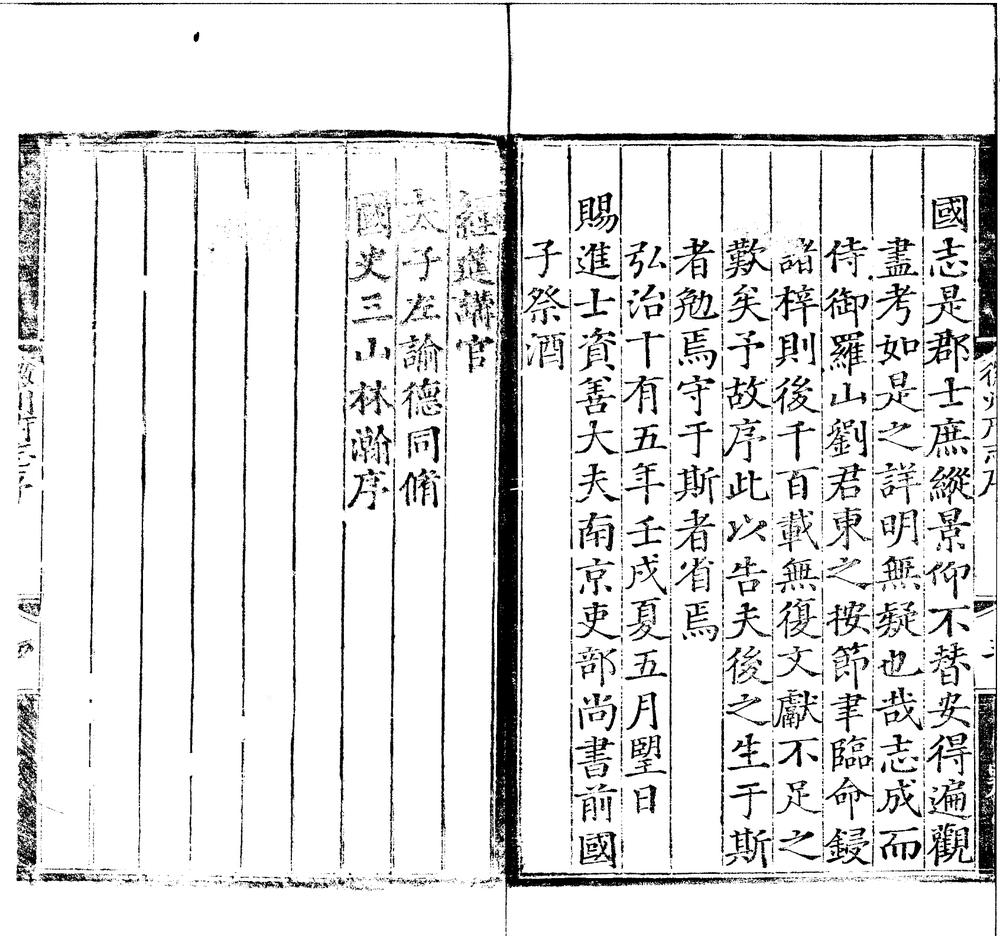 國志是郡士庶縱景仰不替安得遍觀
盡考如是之詳明無疑也哉志成而
侍御羅山劉君東之按節聿臨命鋟
諸梓則後千百載無復文獻不足之
歎矣予故序此以告夫後之生于斯
者勉焉守于斯者省焉
弘治十有五年壬戌夏五月朢日
賜進士資善大夫南京吏部尚書前國
子祭酒
經筵講官
太子左諭德同脩
國史三山林瀚序